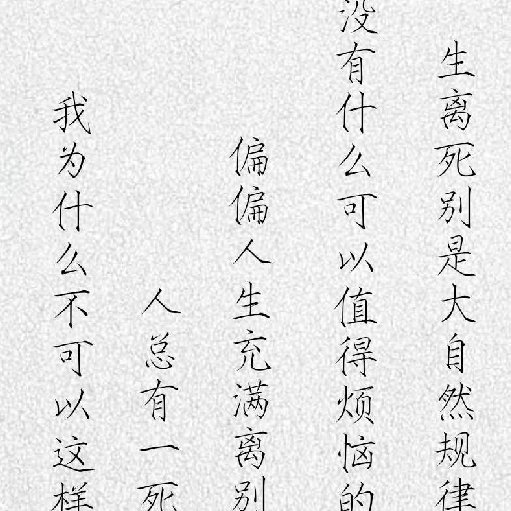 生离死别是大自然规律
没有什么可以值得烦恼的
偏偏人生充满离别
人总有一死
我为什么不可以这样